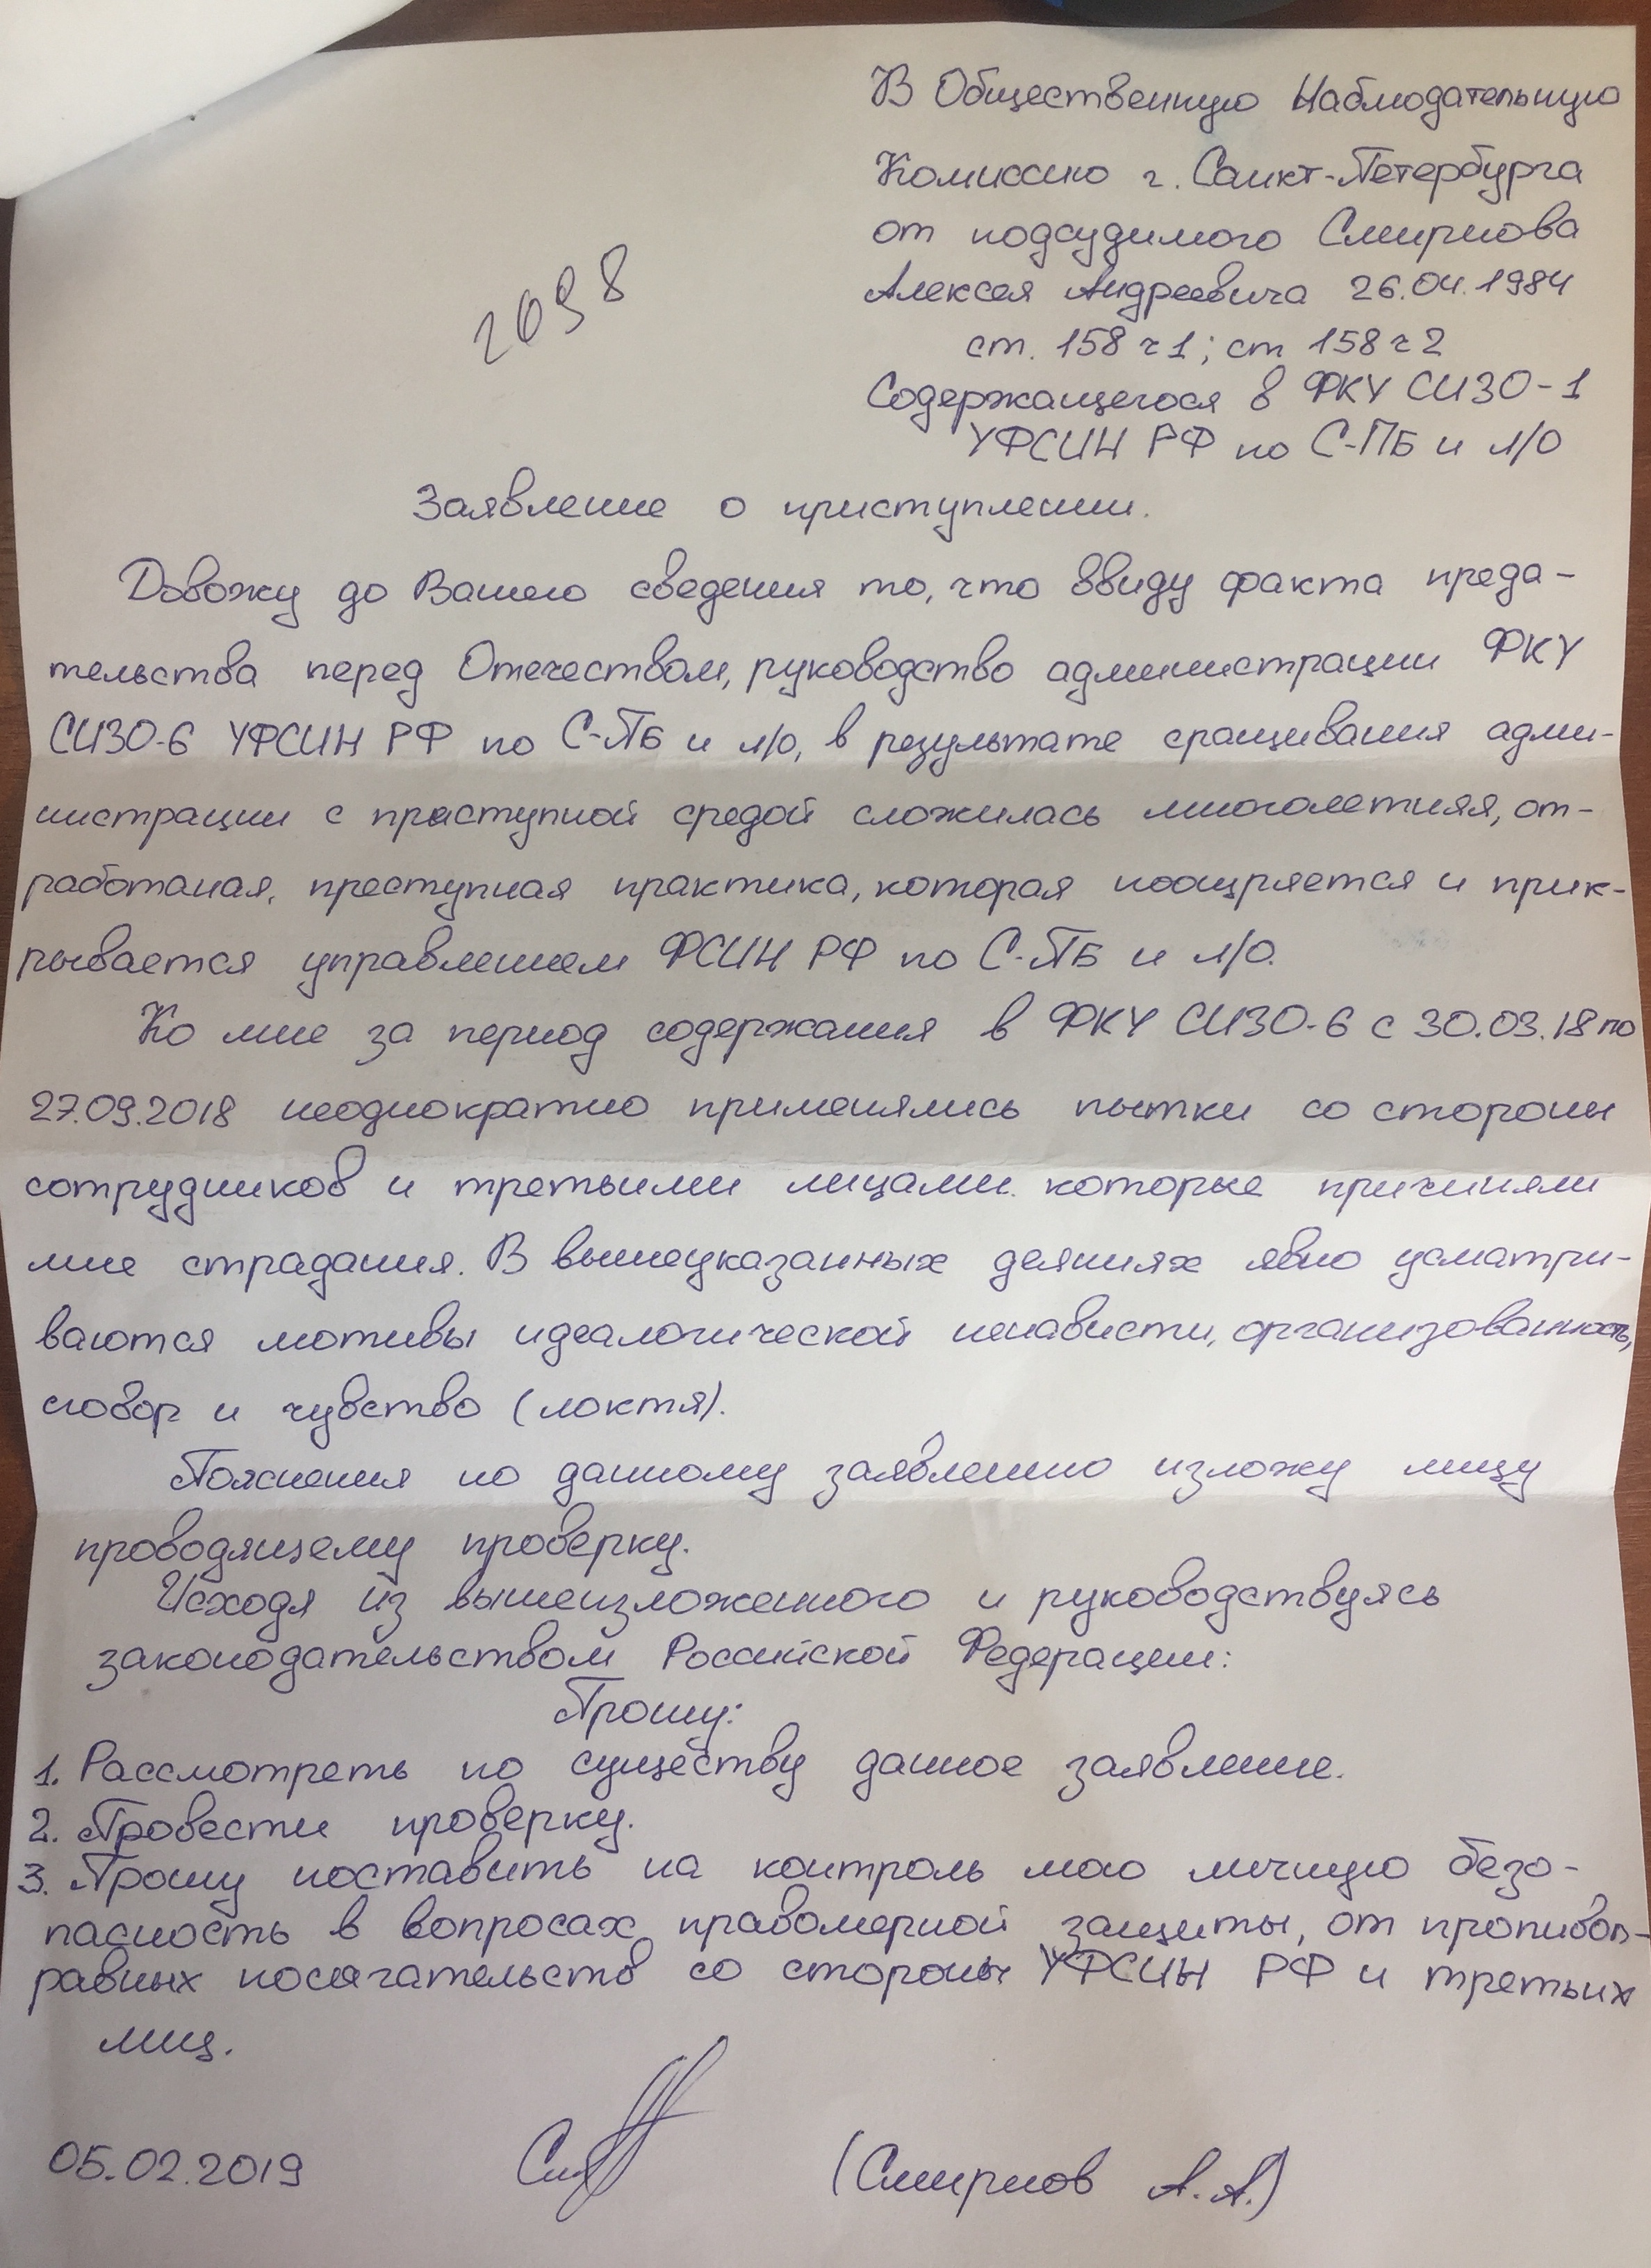 В Общественную Наблюдательную
Комиссию г. Санкт-Петербурга
от подсудимого Смирнова
Алексея Андреевича 26.04.1984
ст. 158 ч 1; ст 158 ч 2
Содержащегося в ФКУ СИЗО-1
УФСИН РФ по С-ПБ и л/о
2098
Заявление о приступлении.
Довожу до Вашего сведения то, что ввиду факта преда-
тельства перед Отечеством, руководство администрации ФКУ
СИЗО-6 УФСИН РФ по С-ПБ и л/о, в результате сращивания адми-
нистрации с преступной средой сложилась многолетняя, от-
работаная, преступная практика, которая поощряется и прик-
рывается управлением ФСИН РФ по С-ПБ и л/о.
Ко мне за период содержания в ФКУ СИЗО-6 с 30.03.18 по
27.09.2018 неоднократно применялись пытки со стороны
сотрудников и третьими лицами которые причиняли
мне страдания. В вышеуказанных деяниях явно усматри-
ваются мотивы идеалогической ненависти, организованность,
сговор и чувство (локтя).
Пояснения по данному заявлению изложу лицу
проводящему проверку.
Исходя из вышеизложенного и руководствуясь
законодательством Российской Федерации:
Прошу:
1. Рассмотреть по существу данное заявление.
2. Провести проверку.
3. Прошу поставить на контроль мою личную безо-
пасность в вопросах правомерной защиты, от противоп-
равных посягательств со стороны УФСИН РФ и третьих
лиц.
05.02.2019 (Смирнов А.А.)